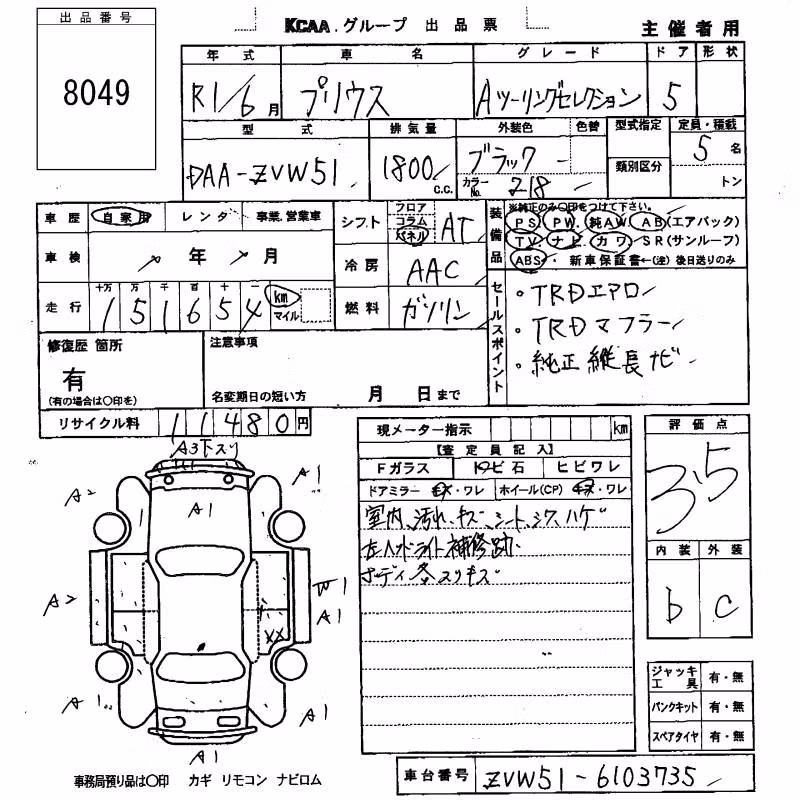 出品番号
8049
KCAA.グループ 出品票
主催者用
年式 車名 グレード ドア 形状
R1/6月 プリウス Aツーリングセレクション 5
型式 排気量 外装色 色替 型式指定 定員・積載
DAA-ZVW51 1800 c.c. ブラック 5名
カラーNo. 218 類別区分 トン
車歴 自家用 レンタ 事業.営業車
シフト フロア コラム パネル AT
装備品
※純正のみ〇印をつけて下さい。
PS PW. 純AW. AB(エアバック)
TV ナビ カワ SR(サンルーフ)
ABS 新車保証書←(注)後日送りのみ
車検 年 月
冷房 AAC
走行 十万 万 千 百 十 一
151654 km マイル
燃料 ガソリン
セールスポイント
・TRDエアロ
・TRDマフラー
・純正 縦長ナビ
修復歴 箇所
有
(有の場合は〇印を)
注意事項
名変期日の短い方 月 日まで
リサイクル料 11480円
現メーター指示 km
【査定員記入】
Fガラス トビ石 ヒビワレ
ドアミラー キズ・ワレ ホイール(CP) キズ・ワレ
室内、汚れ、キズ、シート、シワ、ハゲ
左ヘッドライト補修跡
ボディ各スリキズ
評価点
3.5
内装 外装
b C
ジャッキ工具 有・無
パンクキット 有・無
スペアタイヤ 有・無
A3下スリ
A1
A2
A1
A2
W1
A1
XX
A1
A1
A1
事務局預り品は〇印 カギ リモコン ナビロム
車台番号 ZVW51-6103735